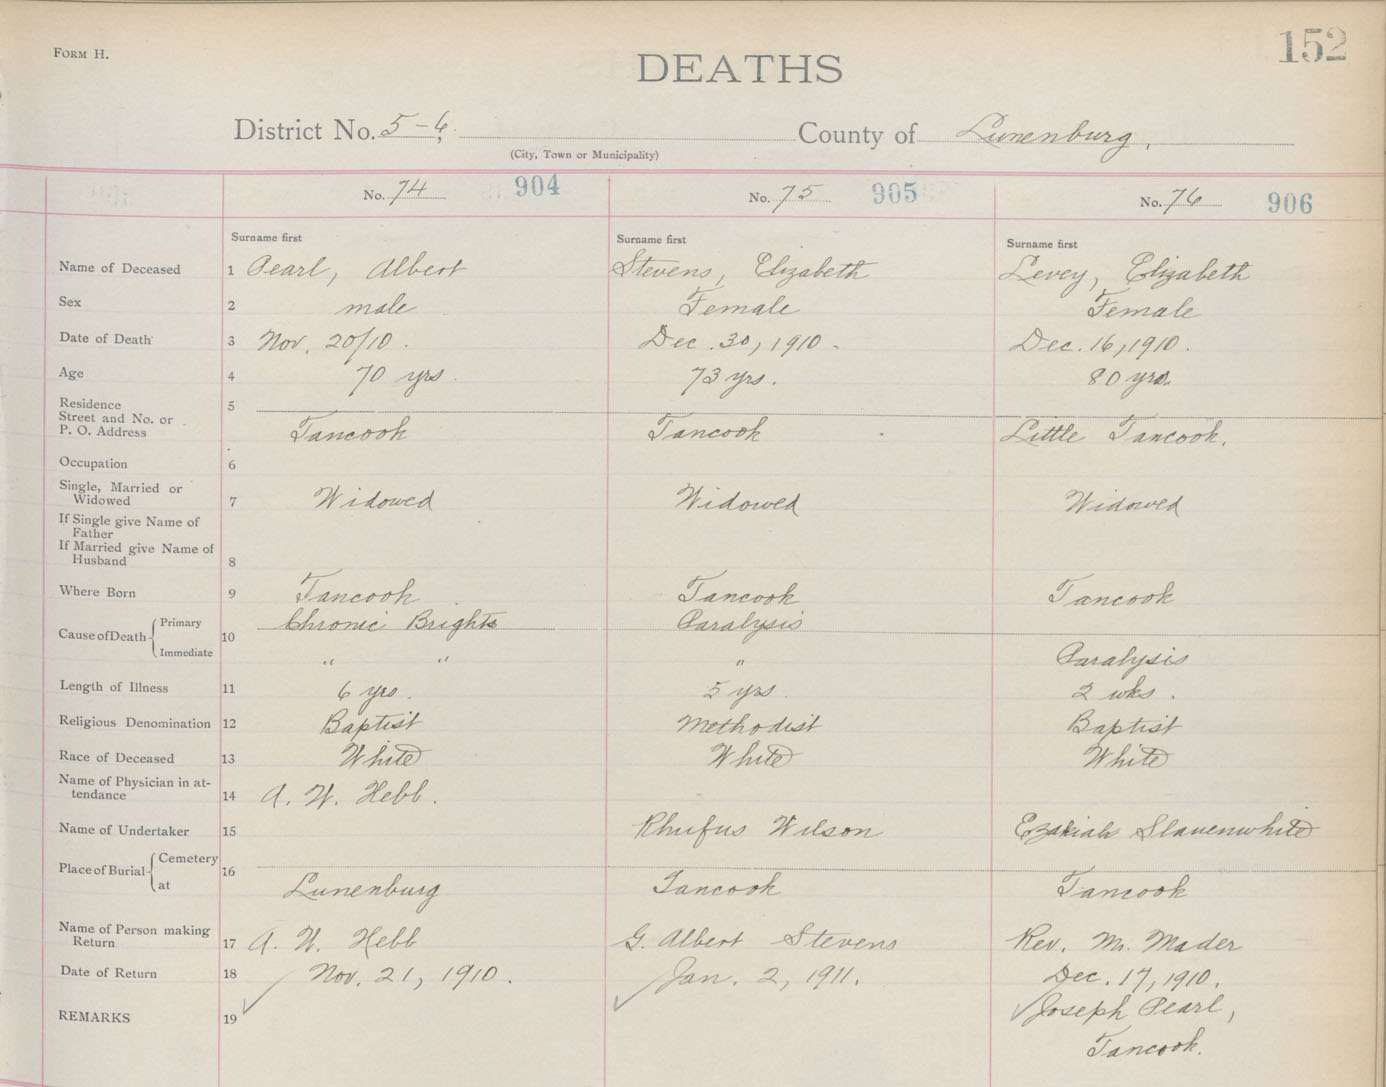 FORM H.
152
DEATHS
District No. 5-6, County of Lunenburg,
(City, Town or Municipality)
No. 74 904 No. 75 905 No. 76 906
Surname first Surname first Surname first
Name of Deceased 1 Pearl, Albert Stevens, Elizabeth Levey, Elizabeth
Sex 2 male Female Female
Date of Death 3 Nov. 20/10. Dec. 30, 1910. Dec. 16, 1910.
Age 4 70 yrs. 73 yrs. 80 yrs.
Residence 5
Street and No. or
P. O. Address Tancook Tancook Little Tancook.
Occupation 6
Single, Married or
Widowed 7 Widowed Widowed Widowed
If Single give Name of
Father
If Married give Name of
Husband 8
Where Born 9 Tancook Tancook Tancook
Cause of Death 10 Primary Chronic Brights Paralysis
Immediate " " " Paralysis
Length of Illness 11 6 yrs. 5 yrs. 2 wks.
Religious Denomination 12 Baptist Methodist Baptist
Race of Deceased 13 White White White
Name of Physician in at-
tendance 14 A. W. Hebb.
Name of Undertaker 15 Rhufus Wilson Slauenwhite
Place of Burial 16 Cemetery
at Lunenburg Tancook Tancook
Name of Person making
Return 17 A. W. Hebb G. Albert Stevens Rev. Mr. Mader
Date of Return 18 Nov. 21, 1910. Jan. 2, 1911. Dec. 17, 1910.
REMARKS 19 Joseph Pearl,
Tancook.